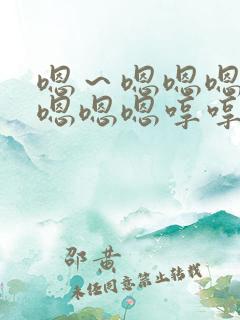 嗯～嗯嗯嗯
嗯嗯嗯哼哼
邵黄
未经同意禁止转载